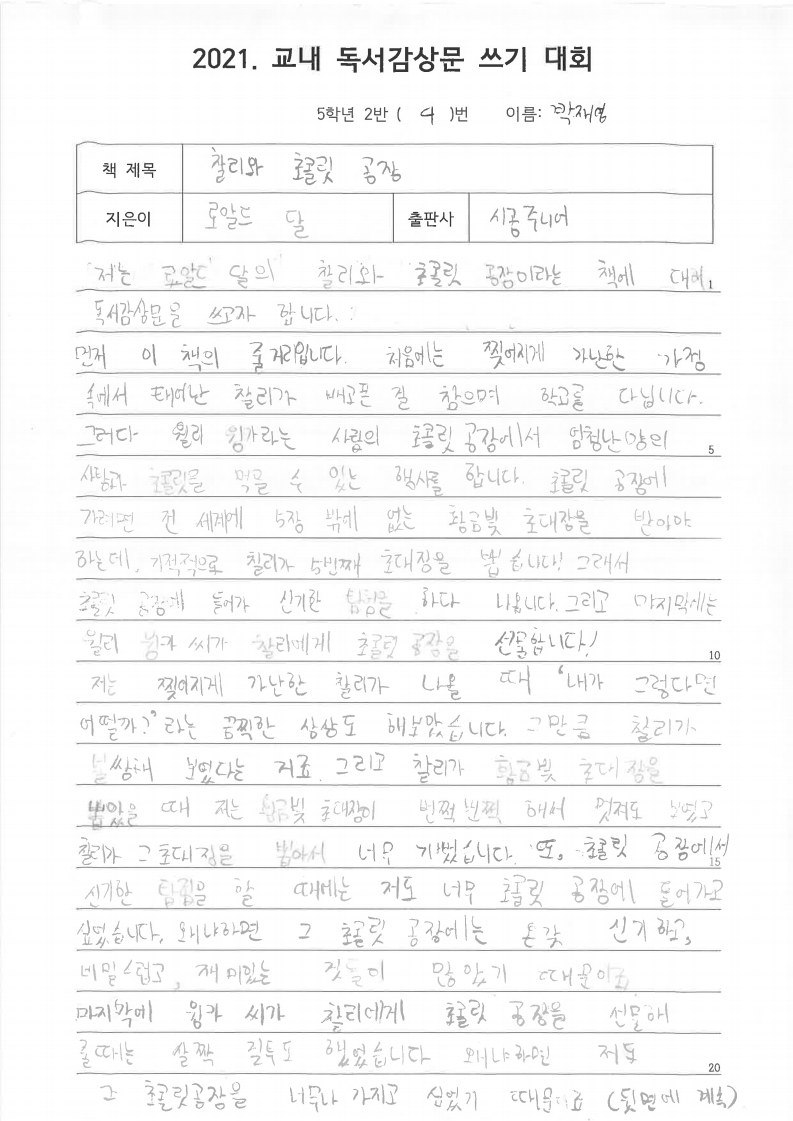 2021. 교내 독서감상문 쓰기 대회
5학년 2반 ( 9 )번 이름: 박재영
책 제목 찰리와 초콜릿 공장
지은이 로알드 달 출판사 시공주니어
저는 로알드 달의 찰리와 초콜릿 공장이라는 책에 대해 1
독서감상문을 쓰고자 합니다.
먼저 이 책의 줄거리입니다. 처음에는 찢어지게 가난한 가정
속에서 태어난 찰리가 배고픈 걸 참으며 학교를 다닙니다.
그러다 윌리 웡카라는 사람의 초콜릿 공장에서 엄청난 양의 5
사탕과 초콜릿을 먹을 수 있는 행사를 합니다. 초콜릿 공장에
가려면 전 세계에 5장 밖에 없는 황금빛 초대장을 받아야
하는데, 기적적으로 찰리가 5번째 초대장을 뽑습니다! 그래서
초콜릿 공장에 들어가 신기한 탐험을 하다 나옵니다. 그리고 마지막에는
윌리 웡카 씨가 찰리에게 초콜릿 공장을 선물합니다! 10
저는 찢어지게 가난한 찰리가 나올 때 '내가 그렇다면
어떨까?' 라는 끔찍한 상상도 해보았습니다. 그만큼 찰리가
불쌍해 보였다는 거죠. 그리고 찰리가 황금빛 초대장을
뽑았을 때 저는 황금빛 초대장이 번쩍 번쩍 해서 멋져도 보였고
찰리가 그 초대장을 뽑아서 너무 기뻤습니다. 또, 초콜릿 공장에서 15
신기한 탐험을 할 때에는 저도 너무 초콜릿 공장에 들어가고
싶었습니다. 왜냐하면 그 초콜릿 공장에는 온갖 신기하고,
비밀스럽고, 재미있는 것들이 많았기 때문이죠.
마지막에 웡카 씨가 찰리에게 초콜릿 공장을 선물해
줄때는 살짝 질투도 했었습니다 왜냐하면 저도 20
그 초콜릿공장을 너무나 가지고 싶었기 때문이죠 (뒷면에 계속)